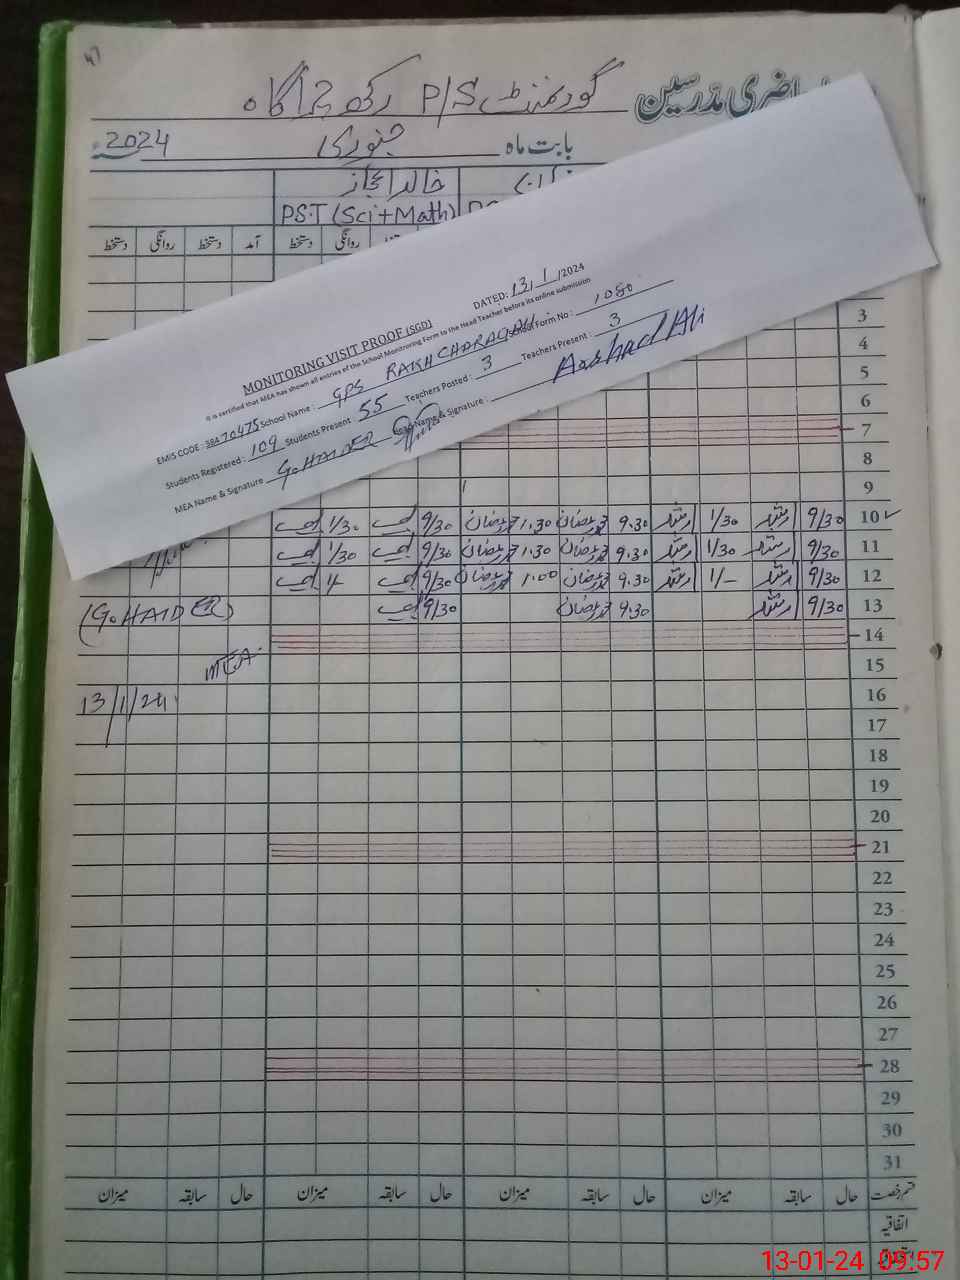 47
حاضری مدرسین گورنمنٹ P/S رکھ چراگاہ
بابت ماہ جنوری 2024
خالد اعجاز
PST (Sci+Math)
آمد دستخط روانگی دستخط
روانگی دستخط
MONITORING VISIT PROOF (SGD) DATED: 13/1/2024
It is certified that MEA has shown all entries of the School Monitoring Form to the Head Teacher before its online submission
EMIS CODE: 38470475 School Name: GPS RAKH CHARAGAH School Form No: 1080
Students Registered: 109 Students Present 55 Teachers Posted: 3 Teachers Present: 3
MEA Name & Signature G.HAIDER Name & Signature: Aarhad Ali
3
4
5
6
7
8
9
10 9/30 ارشد 1/30 ارشد 9.30 محمد رمضان 1.30 محمد رمضان 9/30 1/30
11 9/30 ارشد 1/30 ارشد 9.30 محمد رمضان 1.30 محمد رمضان 9/30 1/30
12 9/30 ارشد 1/- ارشد 9.30 محمد رمضان 1.00 محمد رمضان 9/30
13 9/30 ارشد 9.30 محمد رمضان 9/30
(G.HAIDER)
14
15
MEA
16
13/1/24
17
18
19
20
21
22
23
24
25
26
27
28
29
30
31
قسم رخصت حال سابقہ میزان حال سابقہ میزان حال سابقہ میزان حال سابقہ میزان
اتفاقیہ
13-01-24 09:57